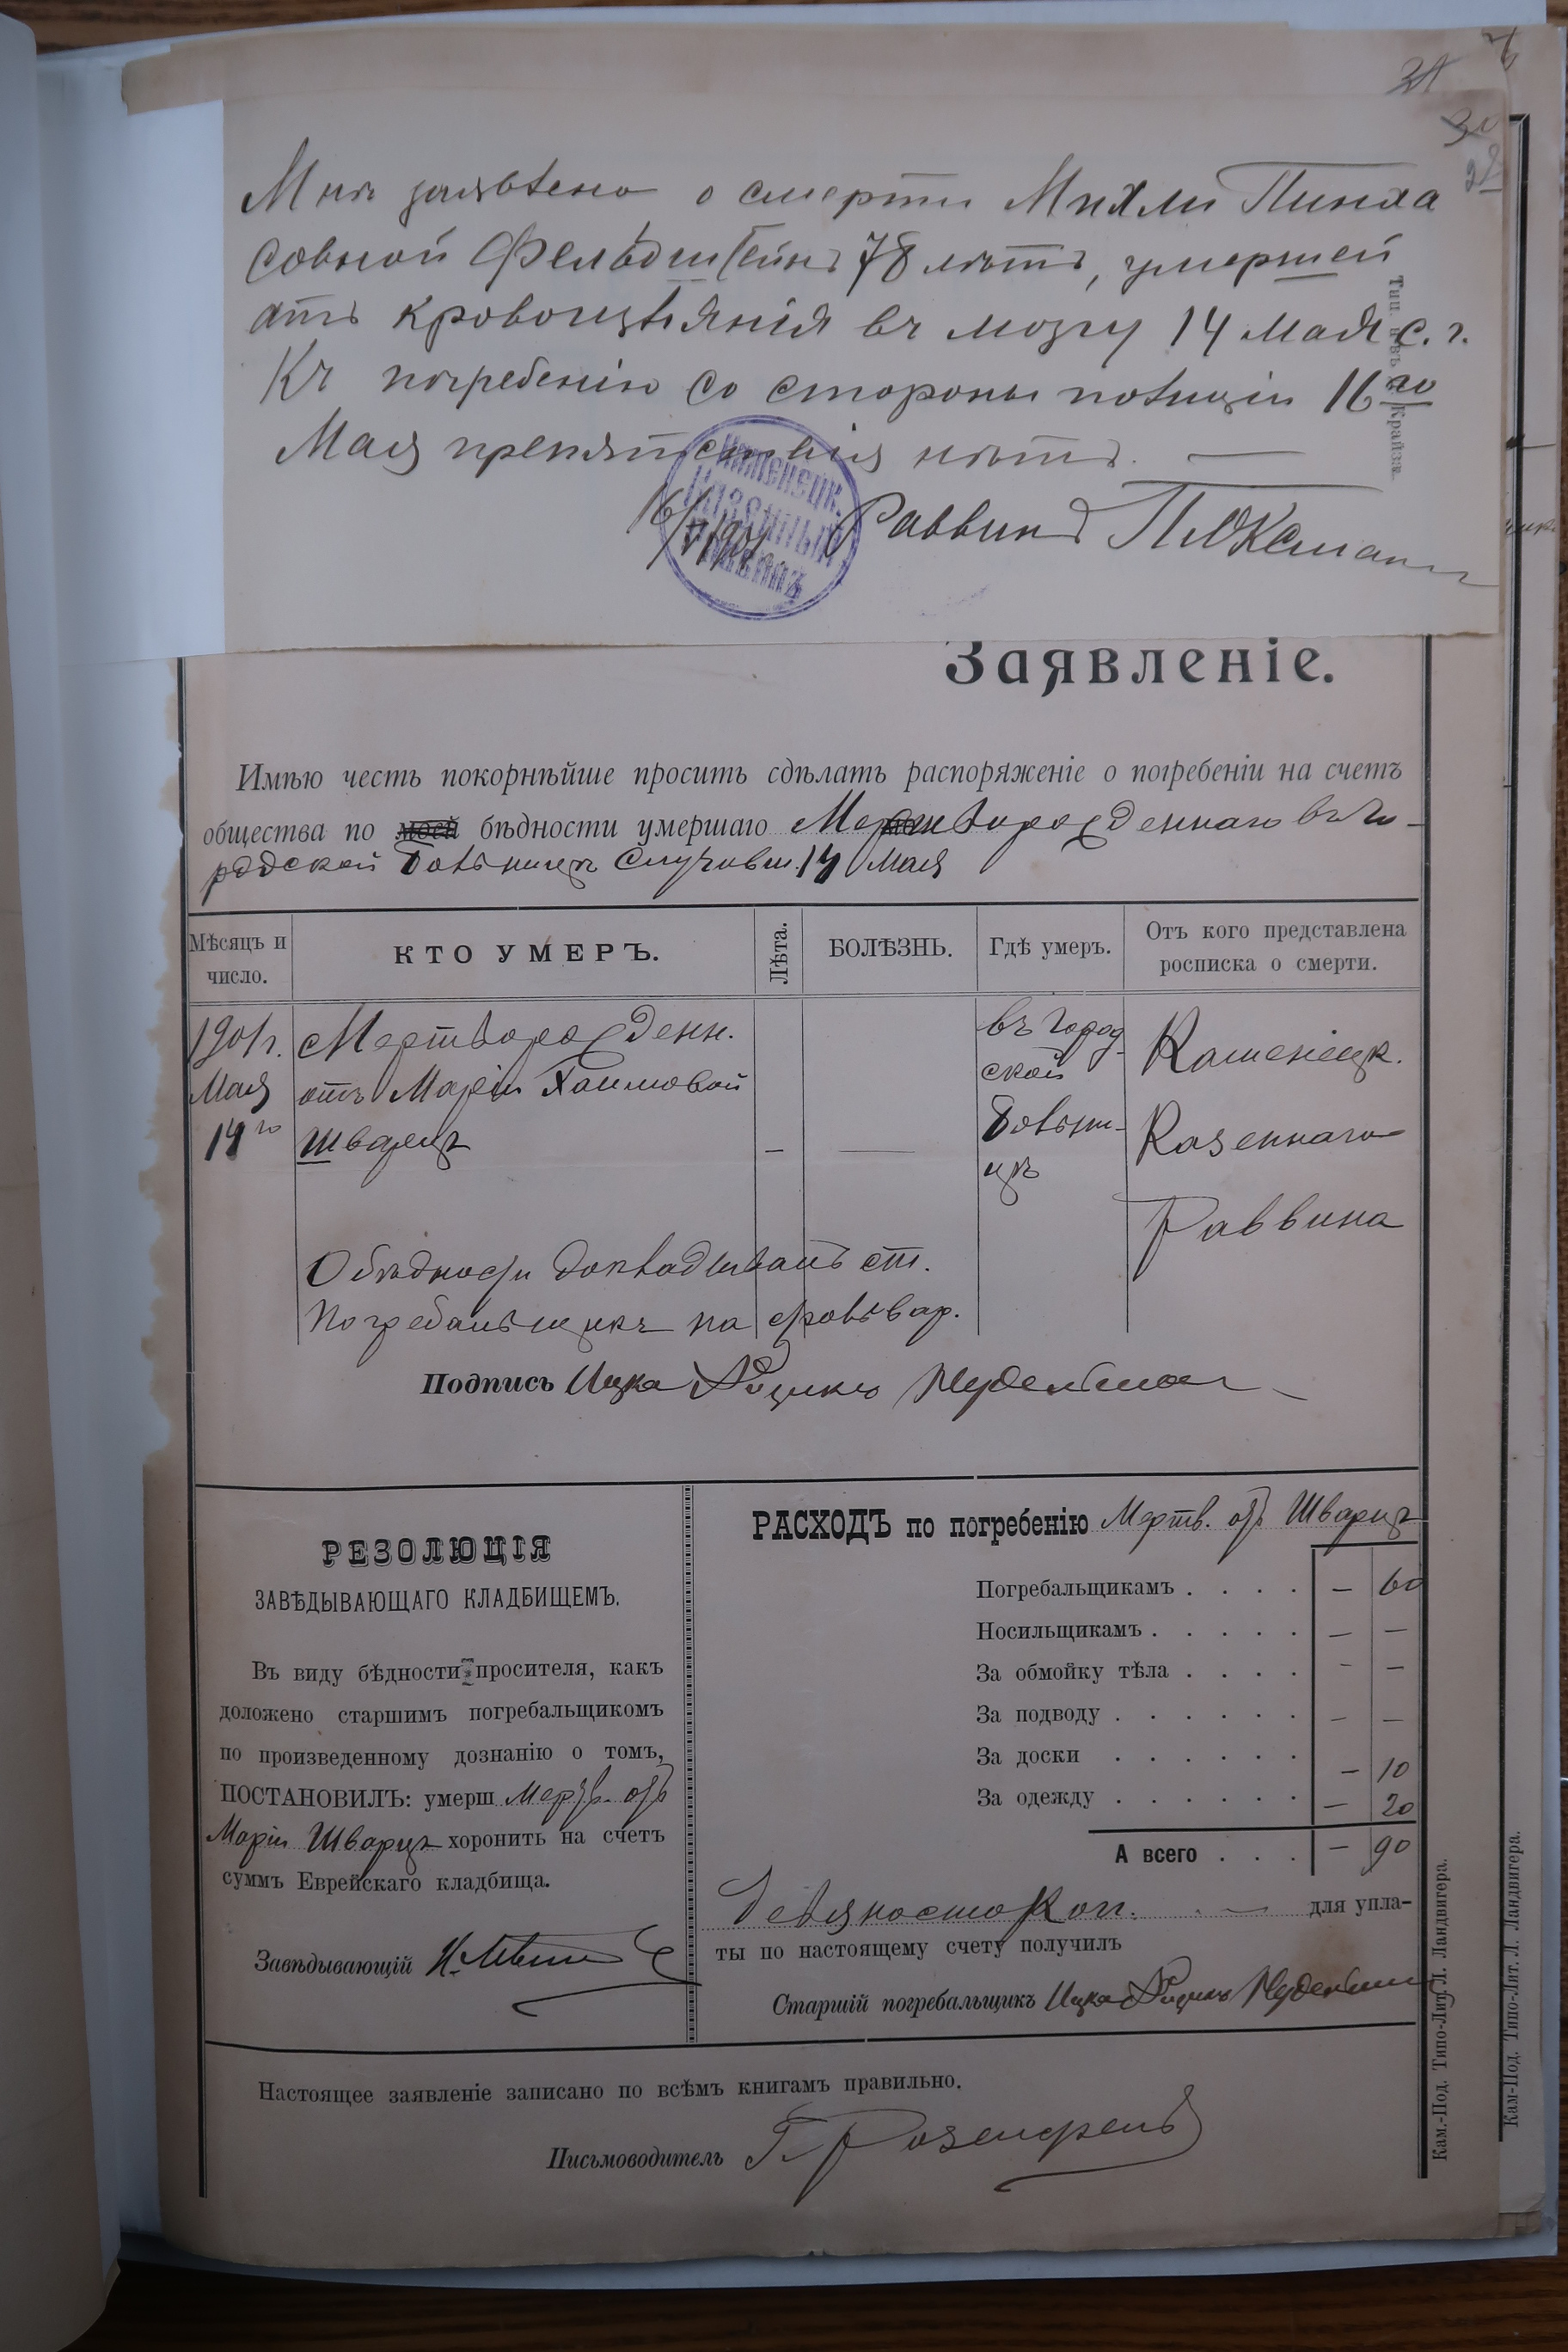 31
30
Мнѣ заявлено о смерти Михли Пинха
совной Фельдштейнъ 78 лѣтъ, умершей
отъ кровоизліянія въ мозгу 14 мая с. г.
Къ погребенію со стороны полиціи 16го
Мая препятствія нѣтъ. —
16/V 1901 Раввинъ
Каменецк.
Казенный
Раввинъ
Заявленіе.
Имѣю честь покорнѣйше просить сдѣлать распоряженіе о погребеніи на счетъ
общества по моей бѣдности умершаго Мертворожденнаго въ Го-
родской больницѣ 14 Мая
Мѣсяцъ и число.
КТО УМЕРЪ.
Лѣта.
БОЛѢЗНЬ.
Гдѣ умеръ.
Отъ кого представлена росписка о смерти.
1901г. Мертворожденн. въ Город- Каменецк.
Мая отъ Маріи Хаимовой ской
14го Шварцъ — — больни- Казеннаго
цѣ
Раввина
О бѣдности докладывалъ ст.
погребальщикъ
Подпись Ицко
РЕЗОЛЮЦІЯ
ЗАВѢДЫВАЮЩАГО КЛАДБИЩЕМЪ.
Въ виду бѣдности просителя, какъ
доложено старшимъ погребальщикомъ
по произведенному дознанію о томъ,
ПОСТАНОВИЛЪ: умерш Мертв. отъ
Маріи Шварцъ хоронить на счетъ
суммъ Еврейскаго кладбища.
Завѣдывающій
РАСХОДЪ по погребенію Мертв. отъ Шварцъ
Погребальщикамъ . . . . — 60
Носильщикамъ . . . . . — —
За обмойку тѣла . . . . — —
За подводу . . . . . . — —
За доски . . . . . . — 10
За одежду . . . . . . — 20
А всего . . . — 90
Девяносто Коп. — для упла-
ты по настоящему счету получилъ
Старшій погребальщикъ Ицко
Настоящее заявленіе записано по всѣмъ книгамъ правильно.
Письмоводитель Г. Розенфельд
Кам.-Под. Типо-Лит. Л. Ландвигера.
Кам-Под. Типо-Лит. Л. Ландвигера.